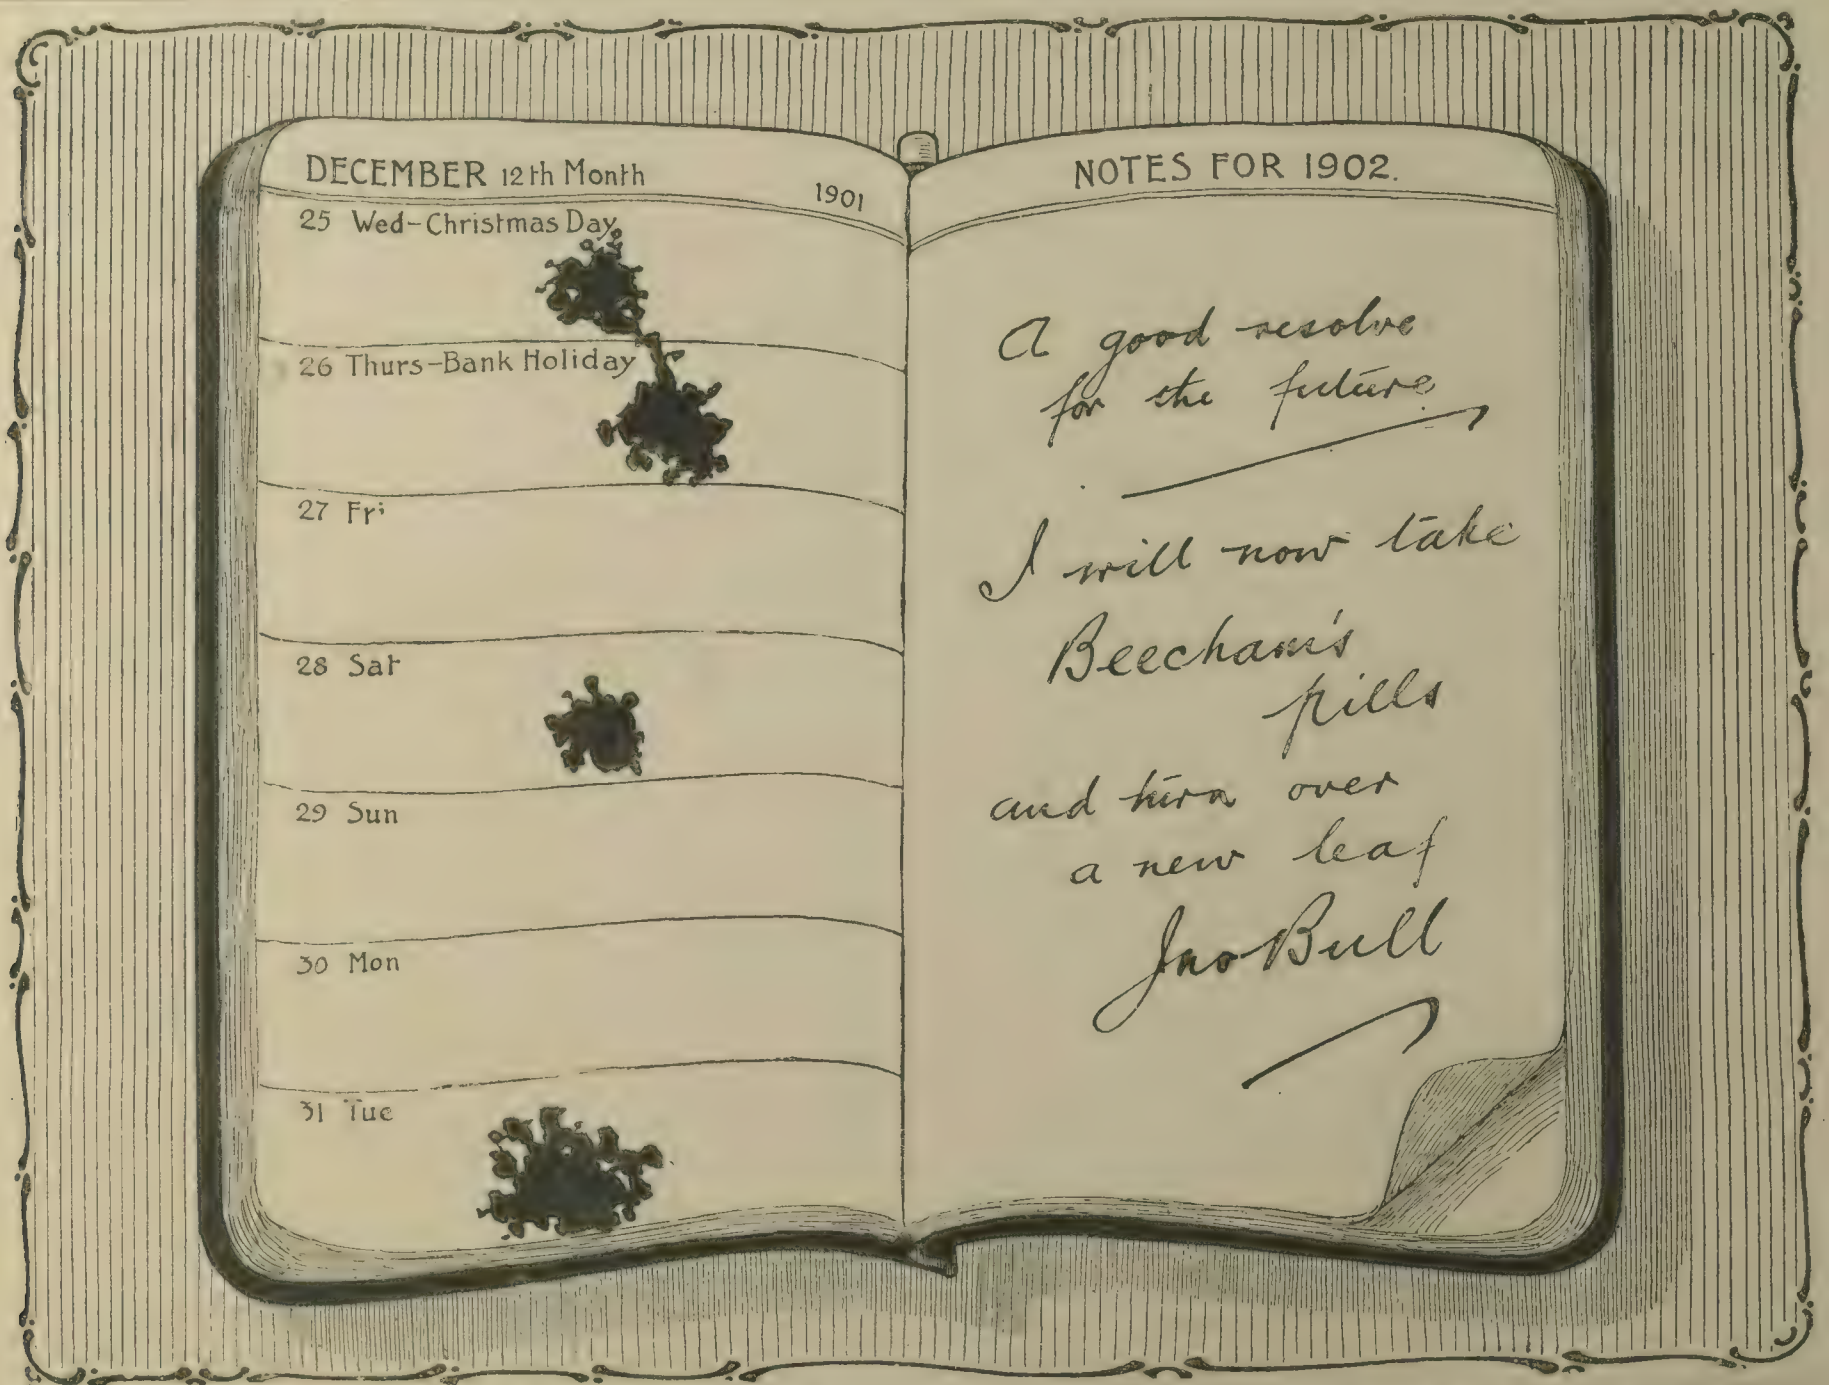 DECEMBER 12th Month 1901
25 Wed-Christmas Day
26 Thurs-Bank Holiday
27 Fri
28 Sat
29 Sun
30 Mon
31 Tue
NOTES FOR 1902.
A good resolve
for the future
I will now take
Beecham's
pills
and turn over
a new leaf
Jno Bull